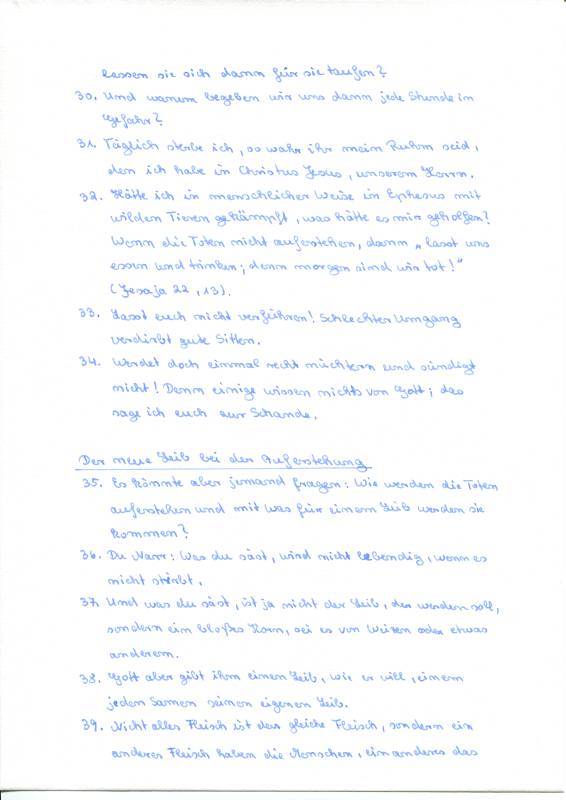 lassen sie sich dann für sie taufen?
30. Und warum begeben wir uns dann jede Stunde in
Gefahr?
31. Täglich sterbe ich, so wahr ihr mein Ruhm seid,
den ich habe in Christus Jesus, unserem Herrn.
32. Hätte ich in menschlicher Weise in Ephesus mit
wilden Tieren gekämpft, was hätte es mir geholfen?
Wenn die Toten nicht auferstehen, dann „lasst uns
essen und trinken; denn morgen sind wir tot!“
(Jesaja 22,13).
33. Lasst euch nicht verführen! Schlechter Umgang
verdirbt gute Sitten.
34. Werdet doch einmal recht nüchtern und sündigt
nicht! Denn einige wissen nichts von Gott; das
sage ich euch zur Schande.
Der neue Leib bei der Auferstehung
35. Es könnte aber jemand fragen: Wie werden die Toten
auferstehen und mit was für einem Leib werden sie
kommen?
36. Du Narr: Was du säst, wird nicht lebendig, wenn es
nicht stirbt.
37. Und was du säst, ist ja nicht der Leib, der werden soll,
sondern ein bloßes Korn, sei es von Weizen oder etwas
anderem.
38. Gott aber gibt ihm einen Leib, wie er will, einem
jeden Samen seinen eigenen Leib.
39. Nicht alles Fleisch ist das gleiche Fleisch, sondern ein
anderes Fleisch haben die Menschen, ein anderes das